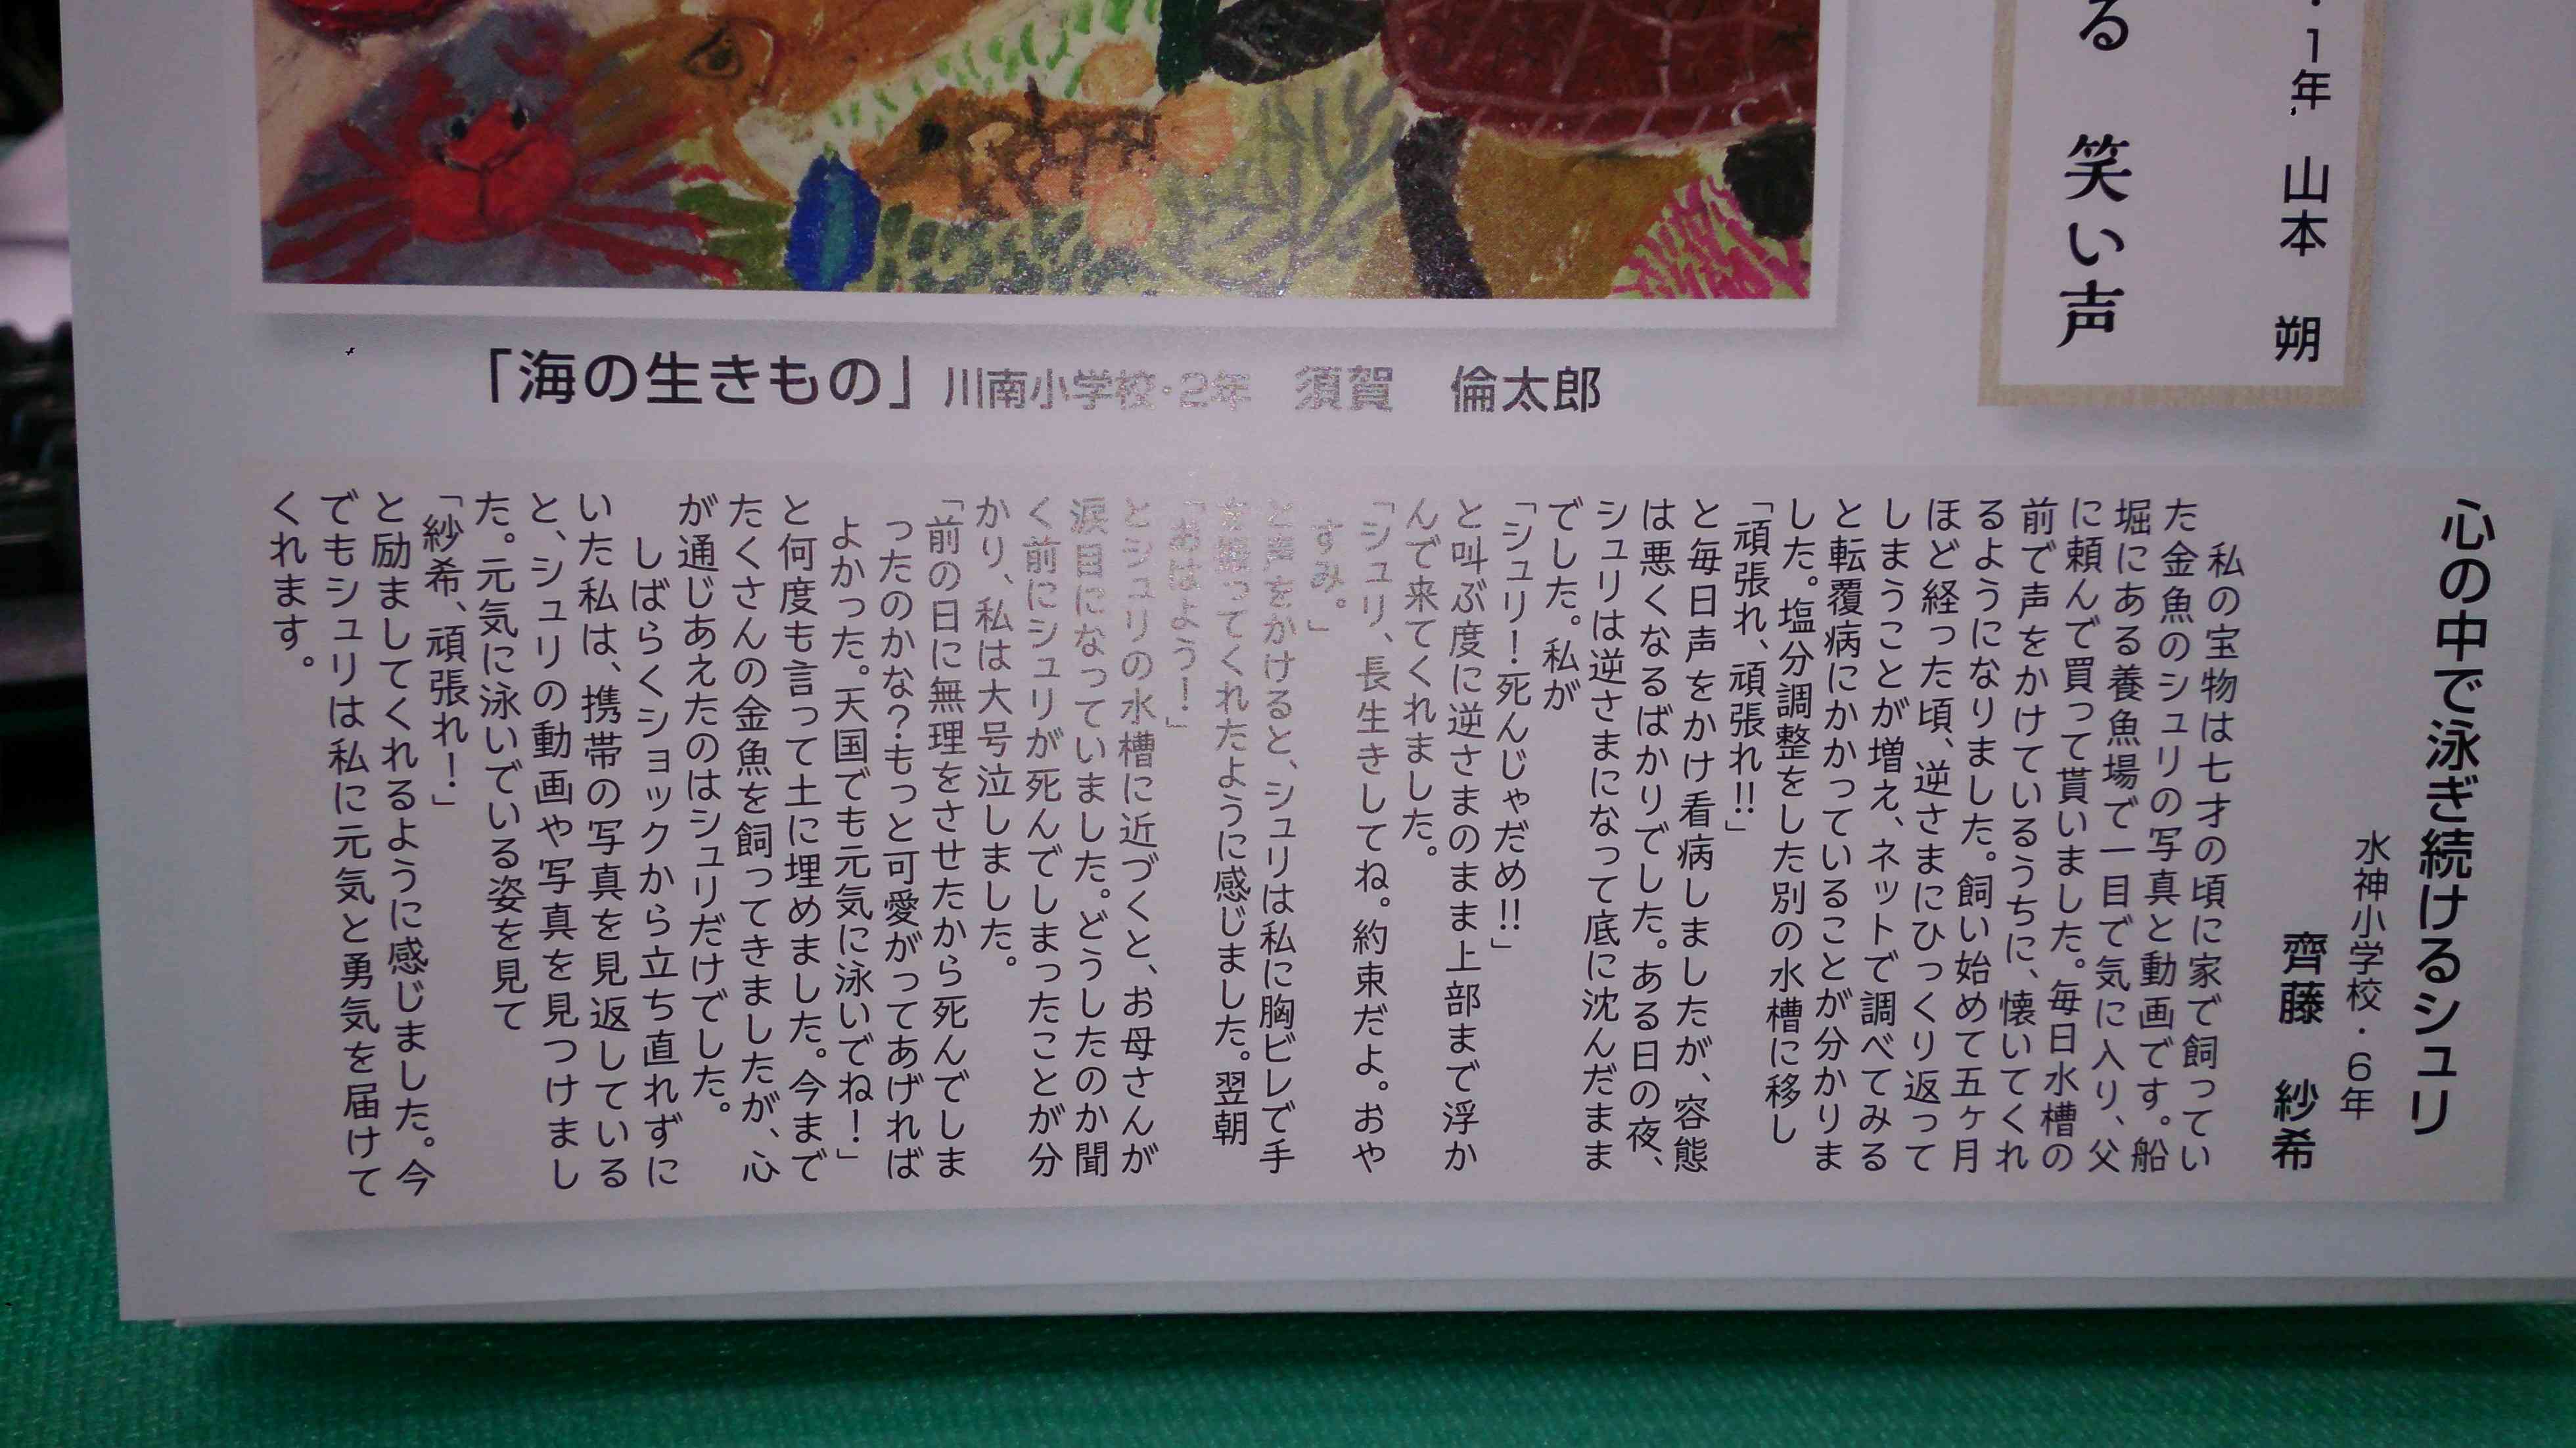 ・1年 山本 朔
る 笑い声
「海の生きもの」川南小学校・2年 須賀 倫太郎
心の中で泳ぎ続けるシュリ
水神小学校・6年
齊藤 紗希
私の宝物は七才の頃に家で飼ってい
た金魚のシュリの写真と動画です。船
堀にある養魚場で一目で気に入り、父
に頼んで買って貰いました。毎日水槽の
前で声をかけているうちに、懐いてくれ
るようになりました。飼い始めて五ヶ月
ほど経った頃、逆さまにひっくり返って
しまうことが増え、ネットで調べてみる
と転覆病にかかっていることが分かりま
した。塩分調整をした別の水槽に移し
「頑張れ、頑張れ!!」
と毎日声をかけ看病しましたが、容態
は悪くなるばかりでした。ある日の夜、
シュリは逆さまになって底に沈んだまま
でした。私が
「シュリ！死んじゃだめ!!」
と叫ぶ度に逆さまのまま上部まで浮か
んで来てくれました。
「シュリ、長生きしてね。約束だよ。おや
すみ。」
と声をかけると、シュリは私に胸ビレで手
を振ってくれたように感じました。翌朝
「おはよう！」
とシュリの水槽に近づくと、お母さんが
涙目になっていました。どうしたのか聞
く前にシュリが死んでしまったことが分
かり、私は大号泣しました。
「前の日に無理をさせたから死んでしま
ったのかな？もっと可愛がってあげれば
よかった。天国でも元気に泳いでね！」
と何度も言って土に埋めました。今まで
たくさんの金魚を飼ってきましたが、心
が通じあえたのはシュリだけでした。
しばらくショックから立ち直れずに
いた私は、携帯の写真を見返している
と、シュリの動画や写真を見つけまし
た。元気に泳いでいる姿を見て
「紗希、頑張れ！」
と励ましてくれるように感じました。今
でもシュリは私に元気と勇気を届けて
くれます。